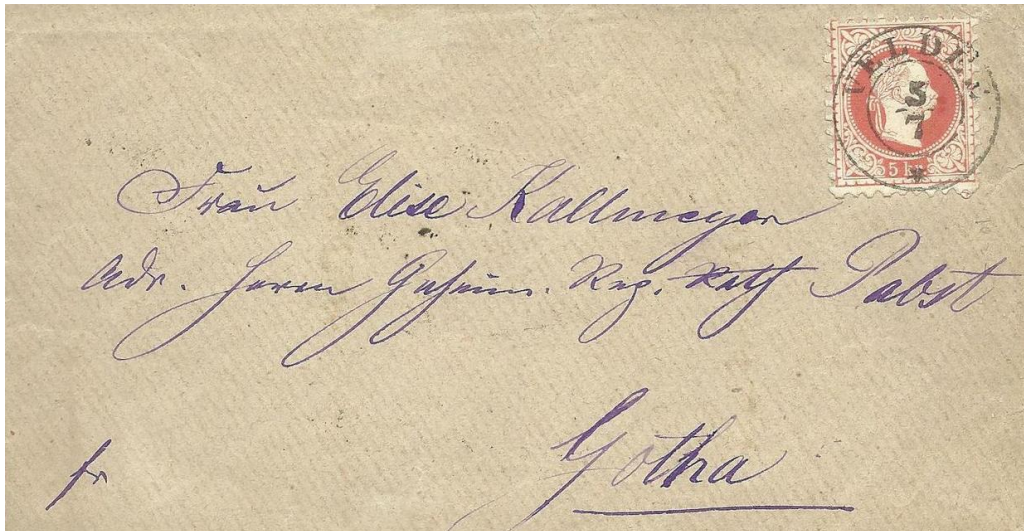 VELDEN
5
7
5 kr
Frau Elise Kallmeyer
Adr. Herrn Geheim. Reg. Rath Pabst
Gotha
fr